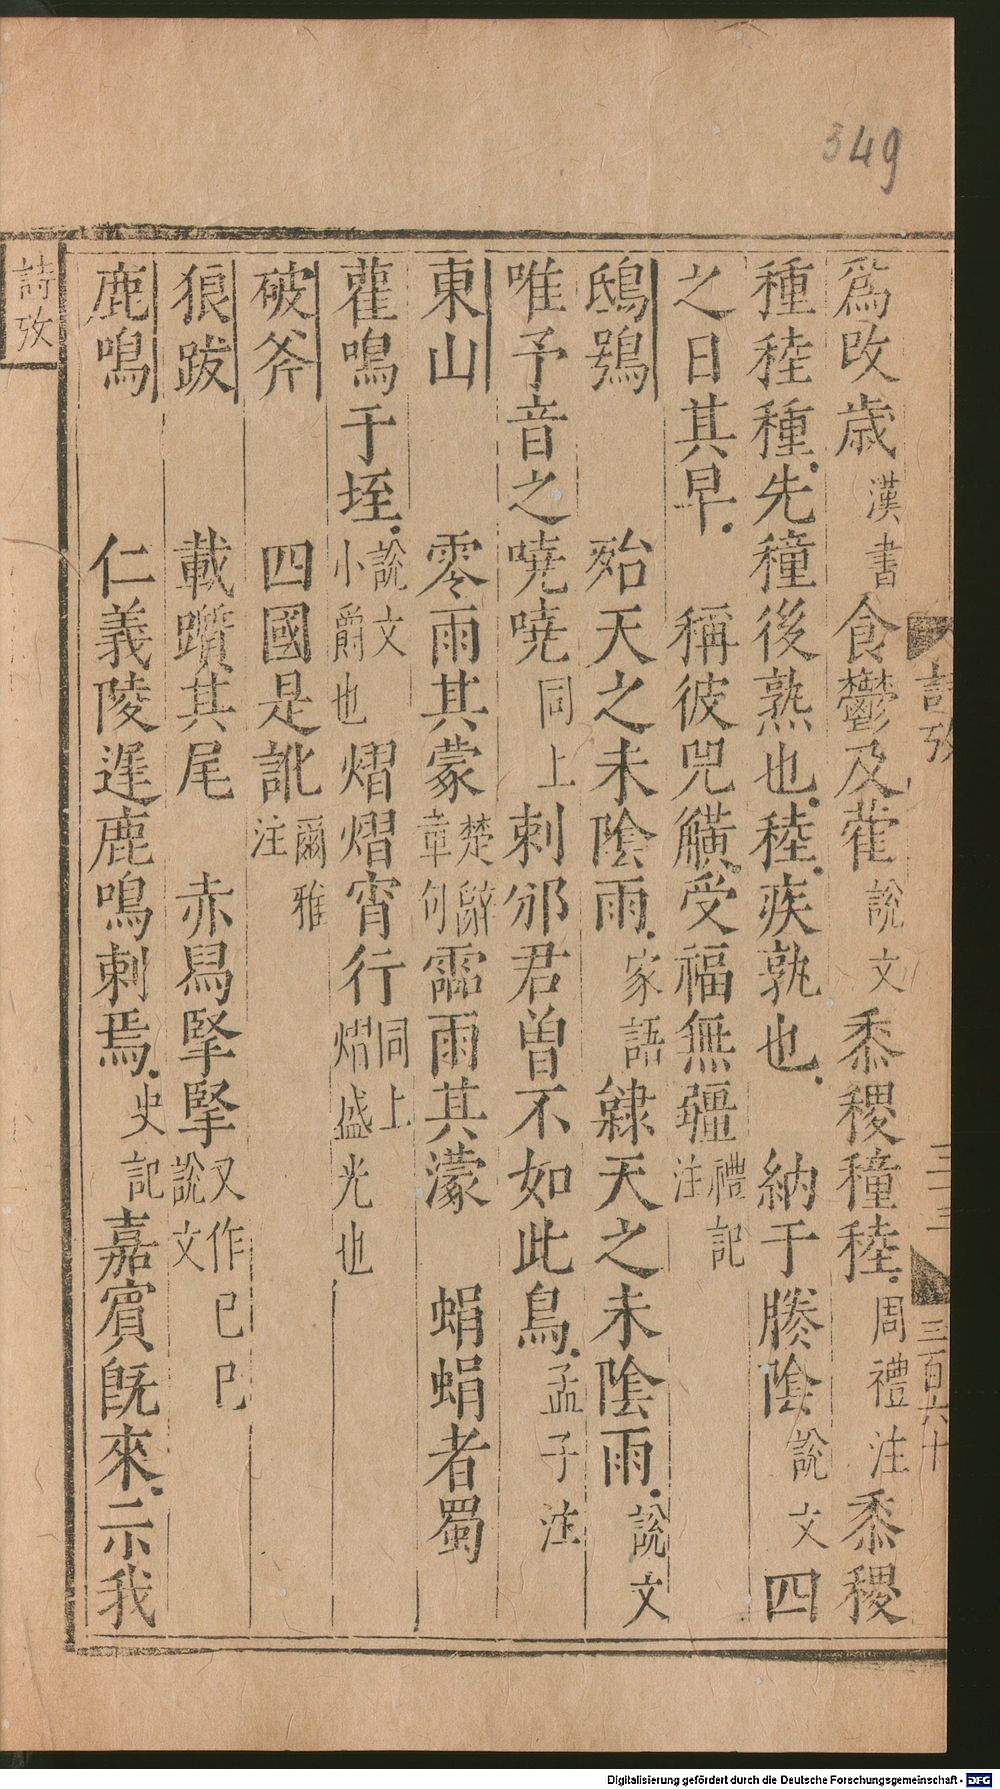 349
詩攷
爲改歲漢書食鬱及藿說文黍稷穜稑周禮注黍稷
種稑種先穜後熟也稑疾孰也 納于縢陰說文四
之日其早 稱彼兕觵受福無疆禮記注
鴟鴞 殆天之未陰雨家語隸天之未陰雨說文
唯予音之嘵嘵同上刺邠君曽不如此鳥孟子注
東山 零雨其蒙楚辭章句霝雨其濛 蜎蜎者蜀
雚鳴于垤說文小爵也熠熠宵行同上熠盛光也
破斧 四國是訛爾雅注
狼跋 載躓其尾 赤舄掔掔又作己己說文
鹿鳴 仁義陵遲鹿鳴刺焉史記嘉賓旣來示我
詩攷
三百六十
Digitalisierung gefördert durch die Deutsche Forschungsgemeinschaft - DFG